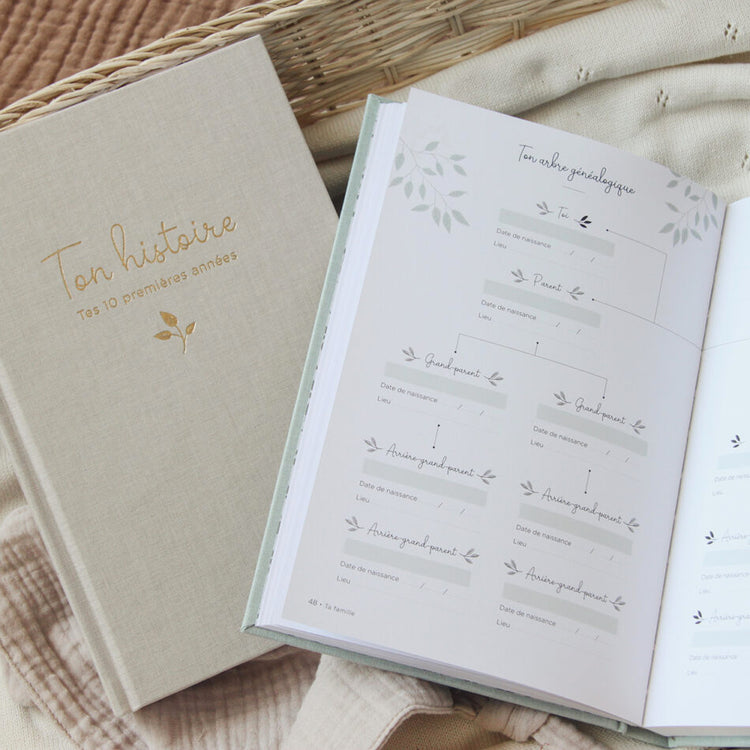 Ton histoire
Tes 10 premières années
Ton arbre généalogique
Toi
Date de naissance / /
Lieu
Parent
Date de naissance / /
Lieu
Grand-parent
Date de naissance / /
Lieu
Grand-parent
Date de naissance / /
Lieu
Arrière-grand-parent
Date de naissance / /
Lieu
Arrière-grand-parent
Date de naissance / /
Lieu
Arrière-grand-parent
Date de naissance / /
Lieu
Arrière-grand-parent
Date de naissance / /
Lieu
48 • Ta famille
Date de naissance
Lieu
Date de naissance
Lieu
Date de naissance
Lieu